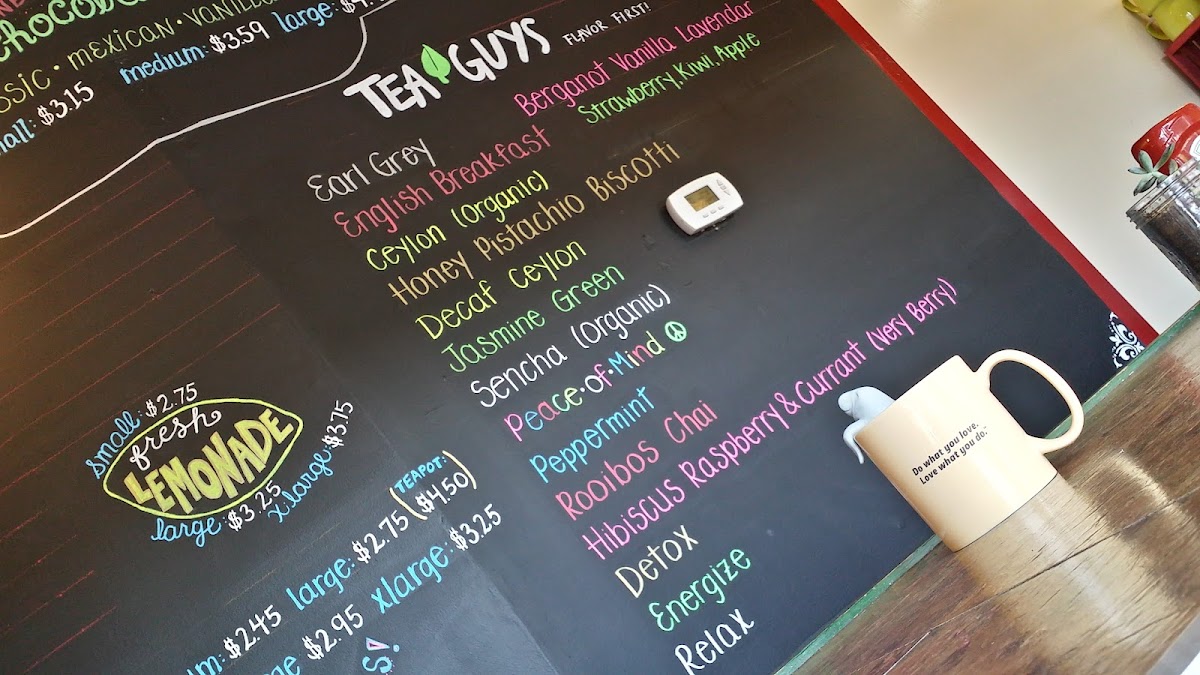 Mexican • Vanilla
$3.15 medium: $3.59 large:
TEA GUYS FLAVOR FIRST!
Berganot Vanilla Lavendar
Strawberry, Kiwi, Apple
Earl Grey
English Breakfast
Ceylon (Organic)
Honey Pistachio Biscotti
Decaf Ceylon
Jasmine Green
Sencha (Organic)
Peace•of•Mind
Peppermint
Rooibos Chai
Hibiscus Raspberry & Currant (Very Berry)
Detox
Energize
Relax
small: $2.75
fresh
LEMONADE
large: $3.25
x large: $3.75
$2.45 large: $2.75 (TEAPOT: $4.50)
$2.95 xlarge: $3.25
Do what you love.
Love what you do.